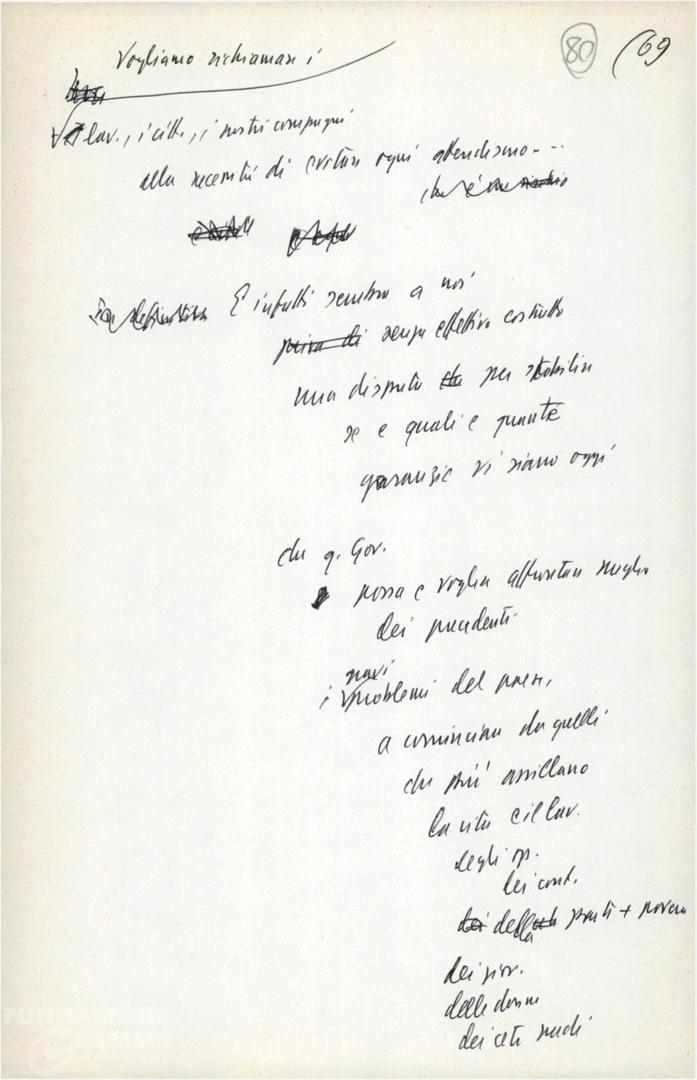 80 (69
Vogliamo richiamare i
lav., i citt., i nostri compagni
alla necessità di evitare ogni attendismo - ..
che è un rischio
in definitiva E infatti sembra a noi
priva di senza effettivo costrutto
una disputa che per stabilire
se e quali e quante
garanzie vi siano oggi
che q. Gov.
possa e voglia affrontare meglio
dei precedenti
gravi
i problemi del paese,
a cominciare da quelli
che più assillano
la vita e il lav.
degli op.
dei cont.
dei della parte + povera
dei giov.
delle donne
dei ceti medi